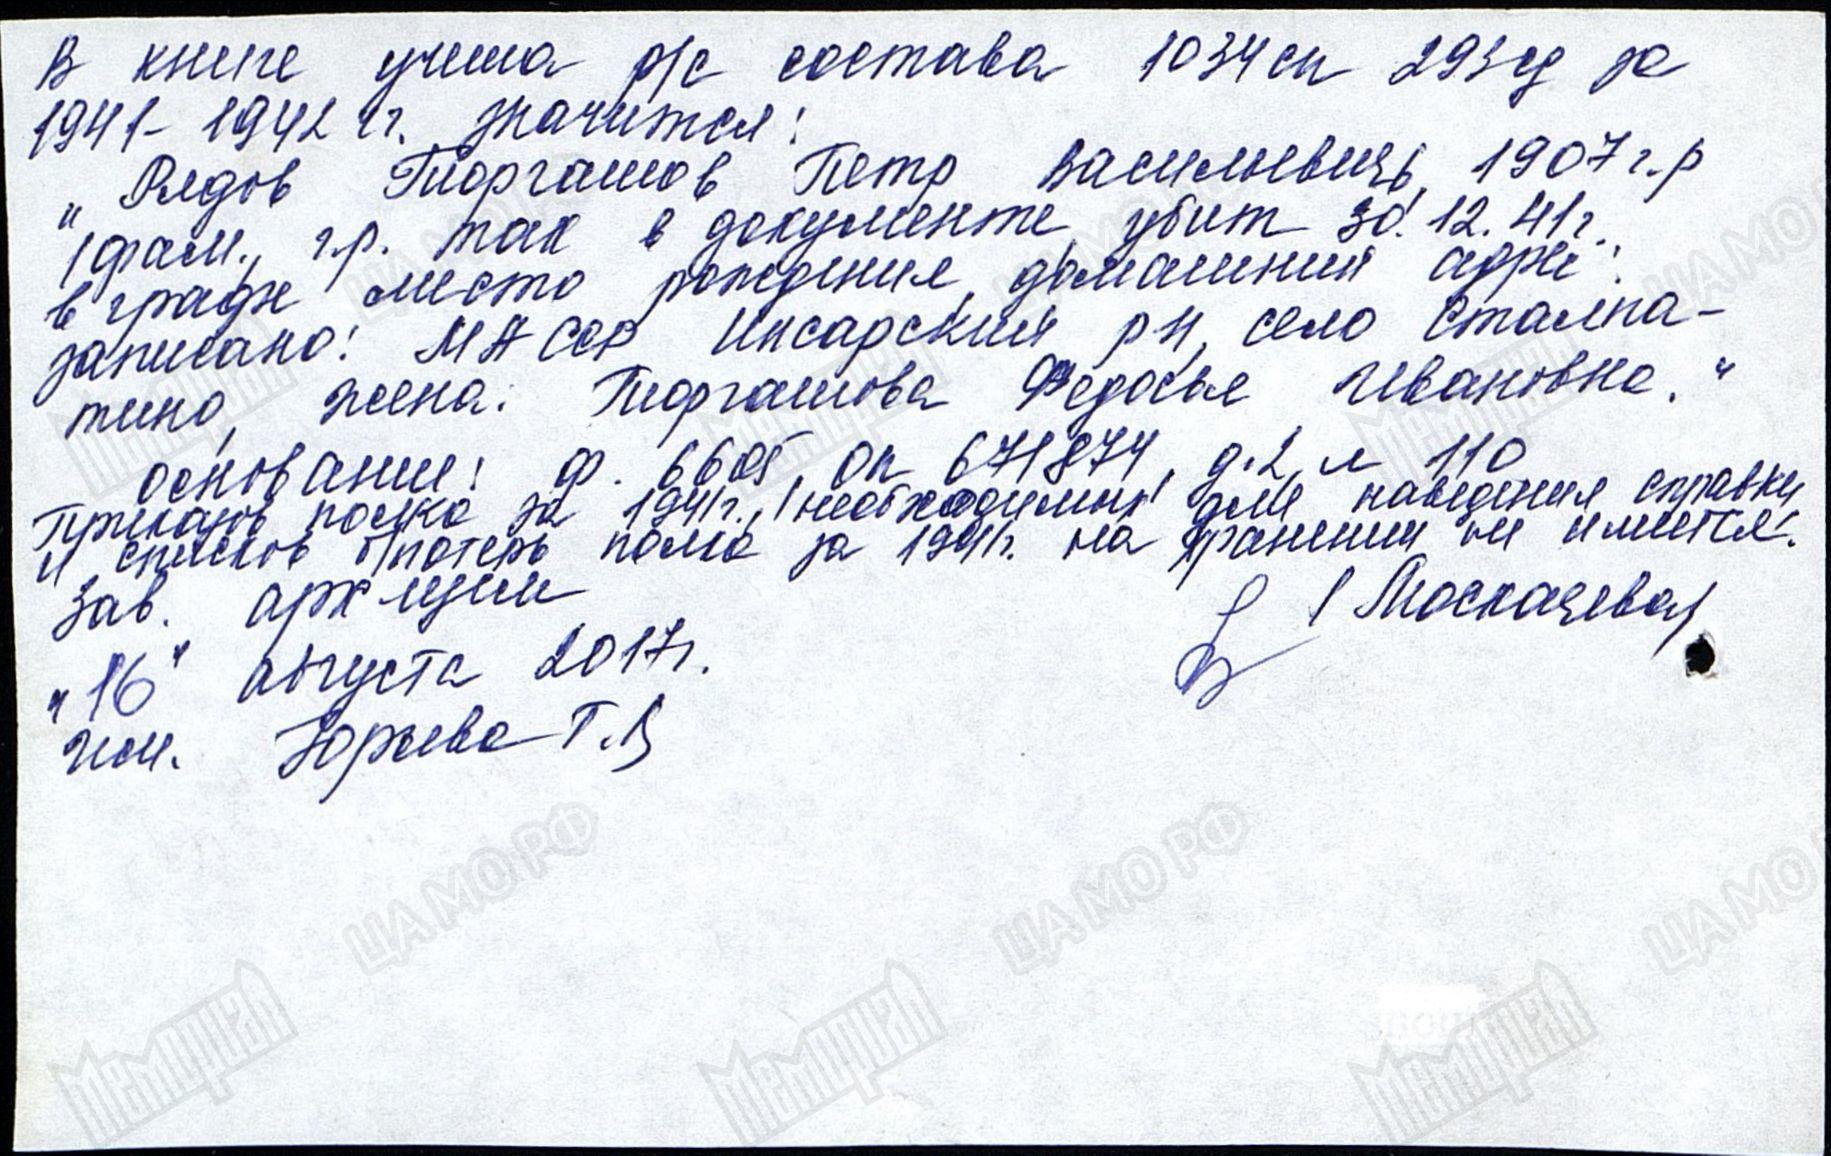 В книге учета р/с состава 1034 сп 293 сд за
1941-1942 гг. значится:
"Рядов Тюргашов Петр Васильевичь, 1907 г.р
(фам., г.р. так в документе, убит 30.12.41г.,
в графе место рождения, домашний адрес:
записано: МАССР Инсарский рн, село Сталпа-
тино, жена: Тюргашова Федосья Ивановна."
основание: ф. 6605 оп 671874, д.2, л 110
Приказов полка за 1941г., (необходимых) для наведения справки
и списков б/потерь полка за 1941г. на хранении не имеется.
Зав. архивхран (Москачева)
"16" августа 2017г.
исп. Зорьева Т.В
ЦАМО РФ
Мемориал